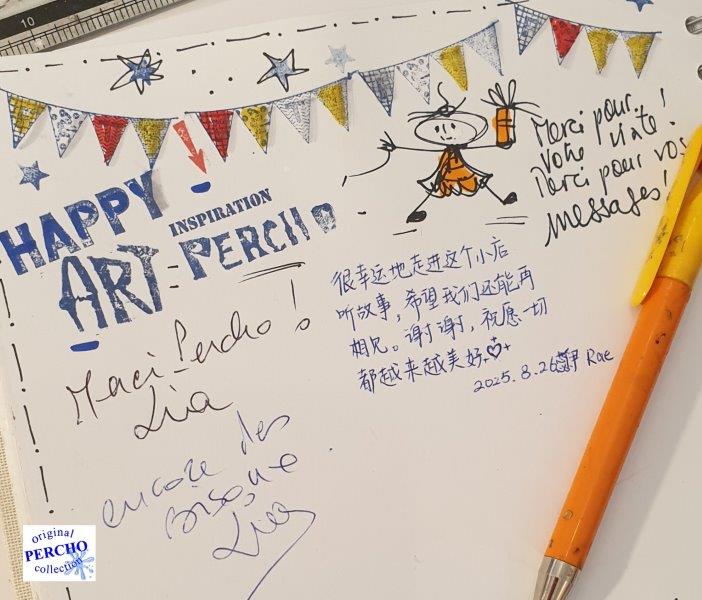 10
Merci pour
votre visite!
Merci pour vos
messages!
HAPPY
INSPIRATION
ART-PERCHO
很幸运地走进这个小店
听故事，希望我们还能再
相见。谢谢，祝愿一切
都越来越美好
2025.8.26 Rae
Merci Percho!
Lia
encore des
Lia
original
PERCHO
collection